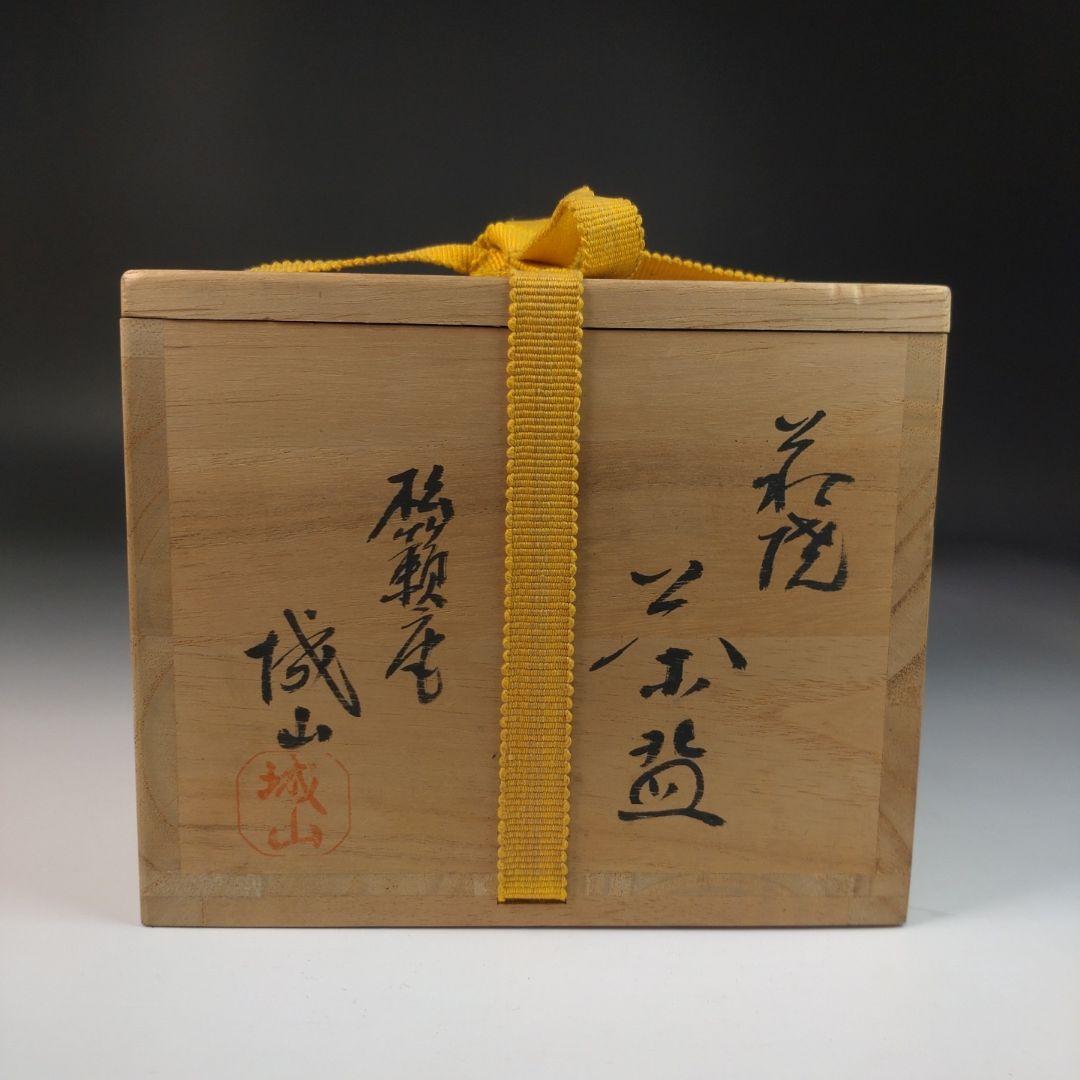 萩焼
茶盌
松籟庵
城山
城山